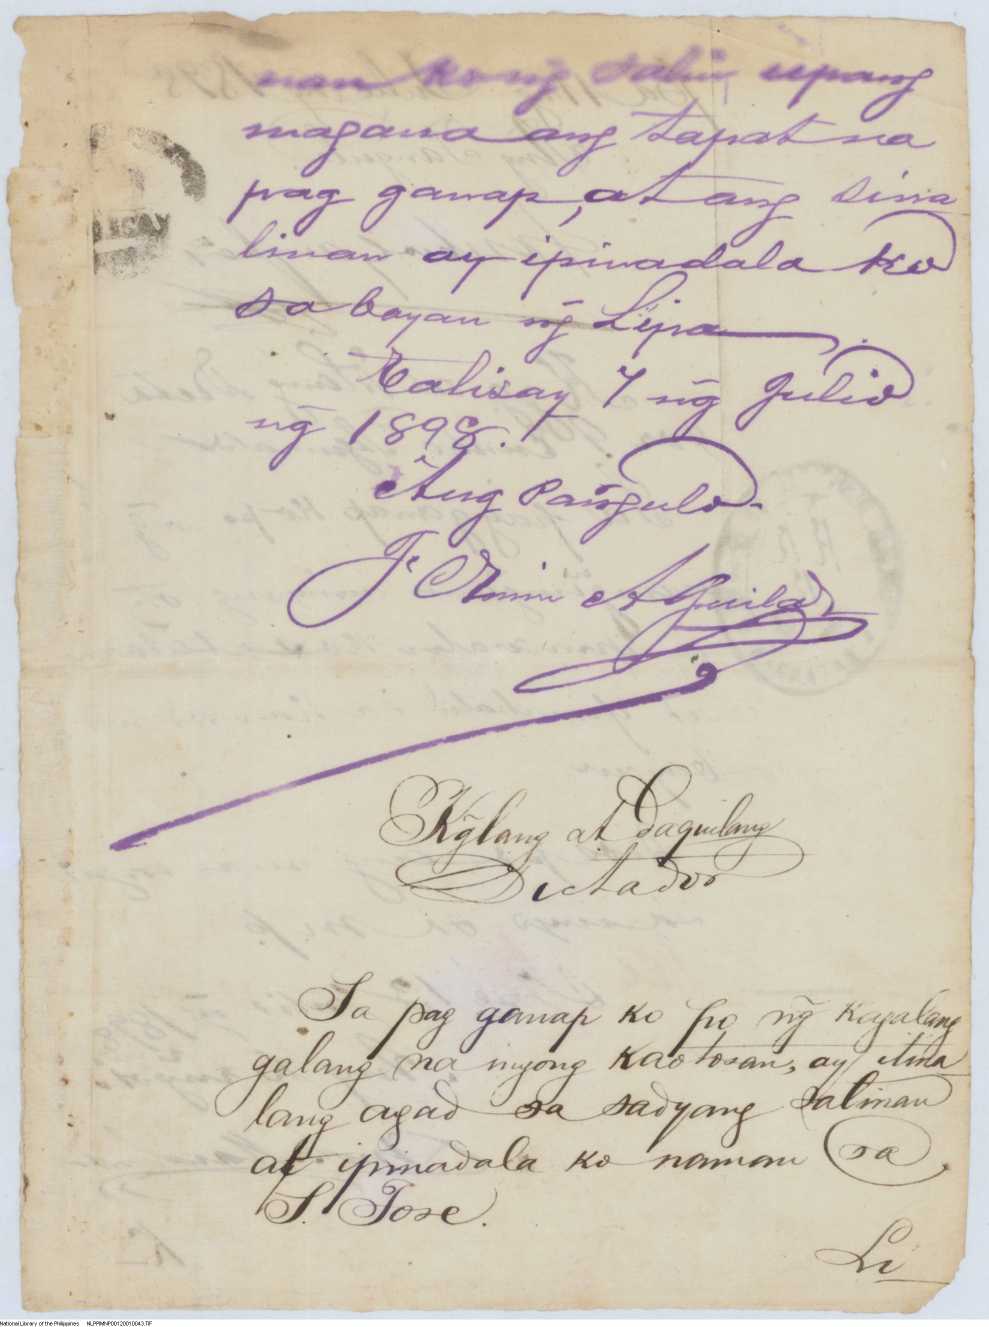 nan ko ng salin, upang
magawa ang tapat na
pag ganap, at ang sina
linan ay ipinadala ko
sa bayan ng̃ Lipa.
Talisay 7 ng̃ Julio
ng̃ 1898.
Ang Pang̃ulo
Aguila
Kg̃lang at Daquilang
Dictador
Sa pag ganap ko po ng̃ Kagalang
galang na inyong Kaotosan, ay itina
lang agad sa sadyang Salinan
at ipinadala ko naman sa
S. Jose.
Li
National Library of the Philippines NLPPIMNP00120010043.TIF